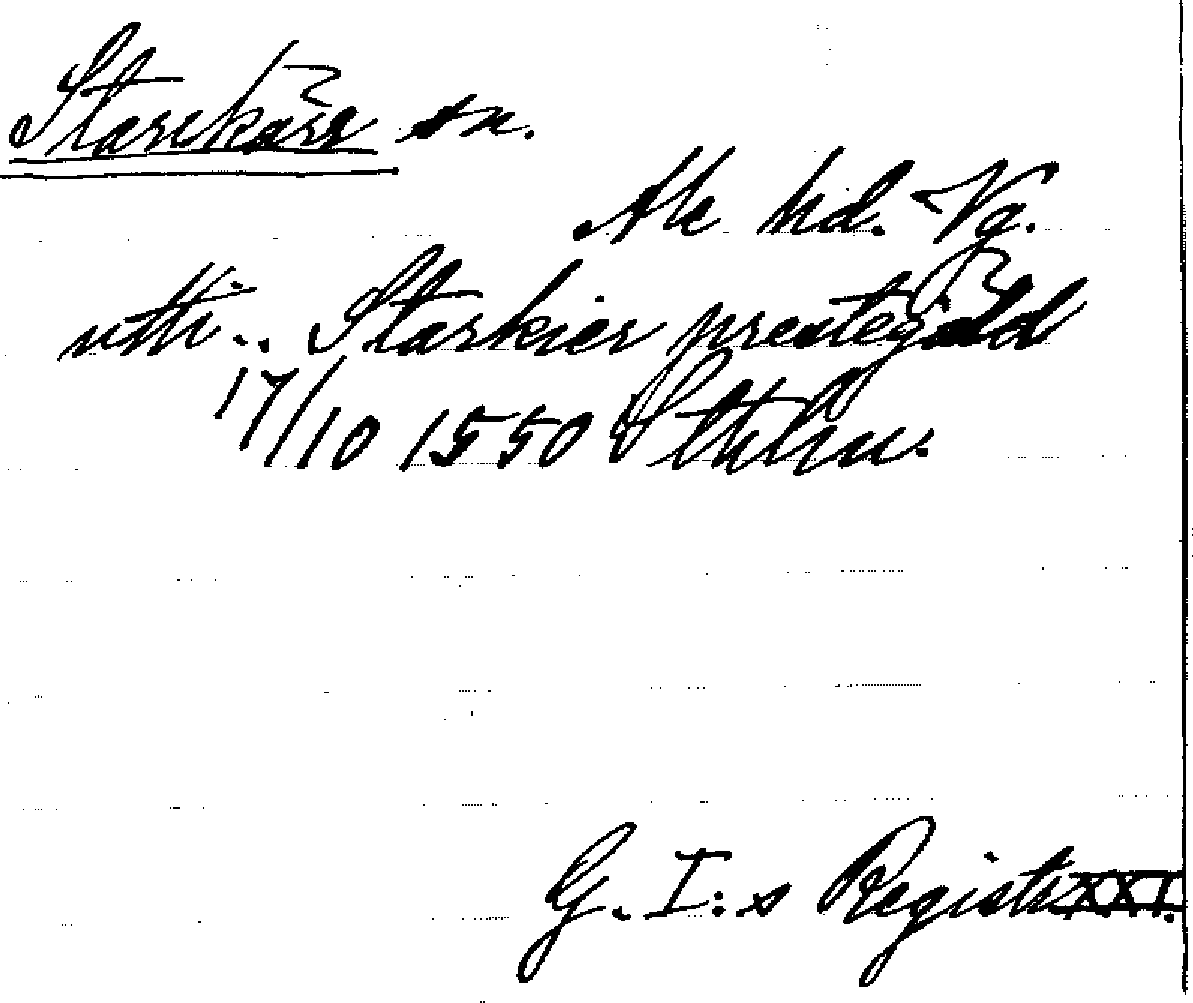 Starrkärrs sn.
Ale hd. Vg.
utti.. Starkier prestegäld
17/10 1550 Sthlm.
G. I:s Registr XXI.